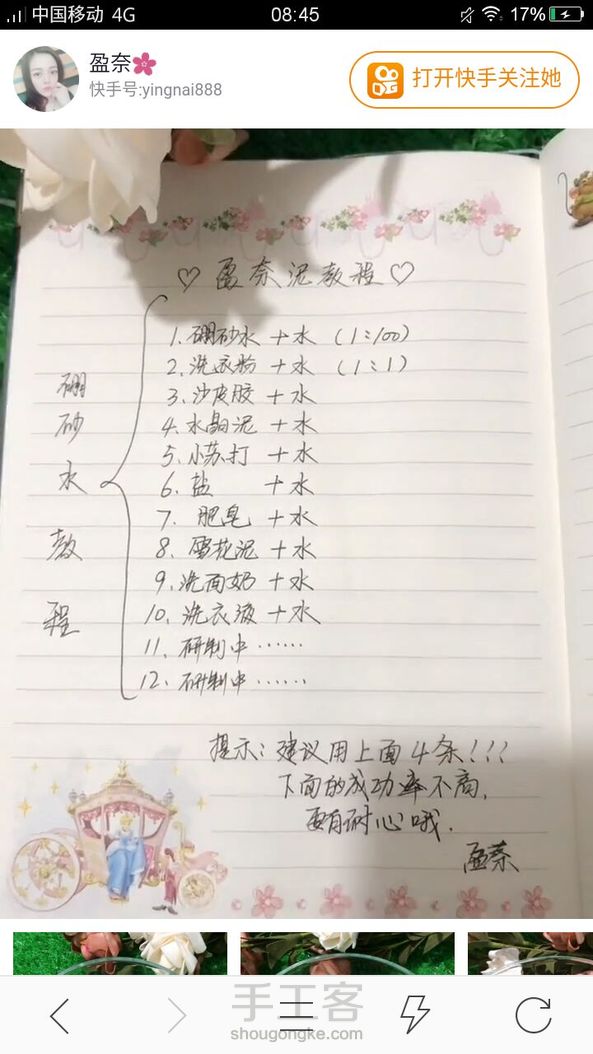 中国移动 4G 08:45 17%
盈奈🌸
快手号:yingnai888
打开快手关注她
♡ 盈奈泥教程 ♡
硼砂水教程
1. 硼砂水 + 水 (1:100)
2. 洗衣粉 + 水 (1:1)
3. 沙皮胶 + 水
4. 水晶泥 + 水
5. 小苏打 + 水
6. 盐 + 水
7. 肥皂 + 水
8. 雪花泥 + 水
9. 洗面奶 + 水
10. 洗衣液 + 水
11. 研制中……
12. 研制中……
提示:建议用上面4条!!!
下面的成功率不高,
要有耐心哦.
盈奈
手工客
shougongke.com